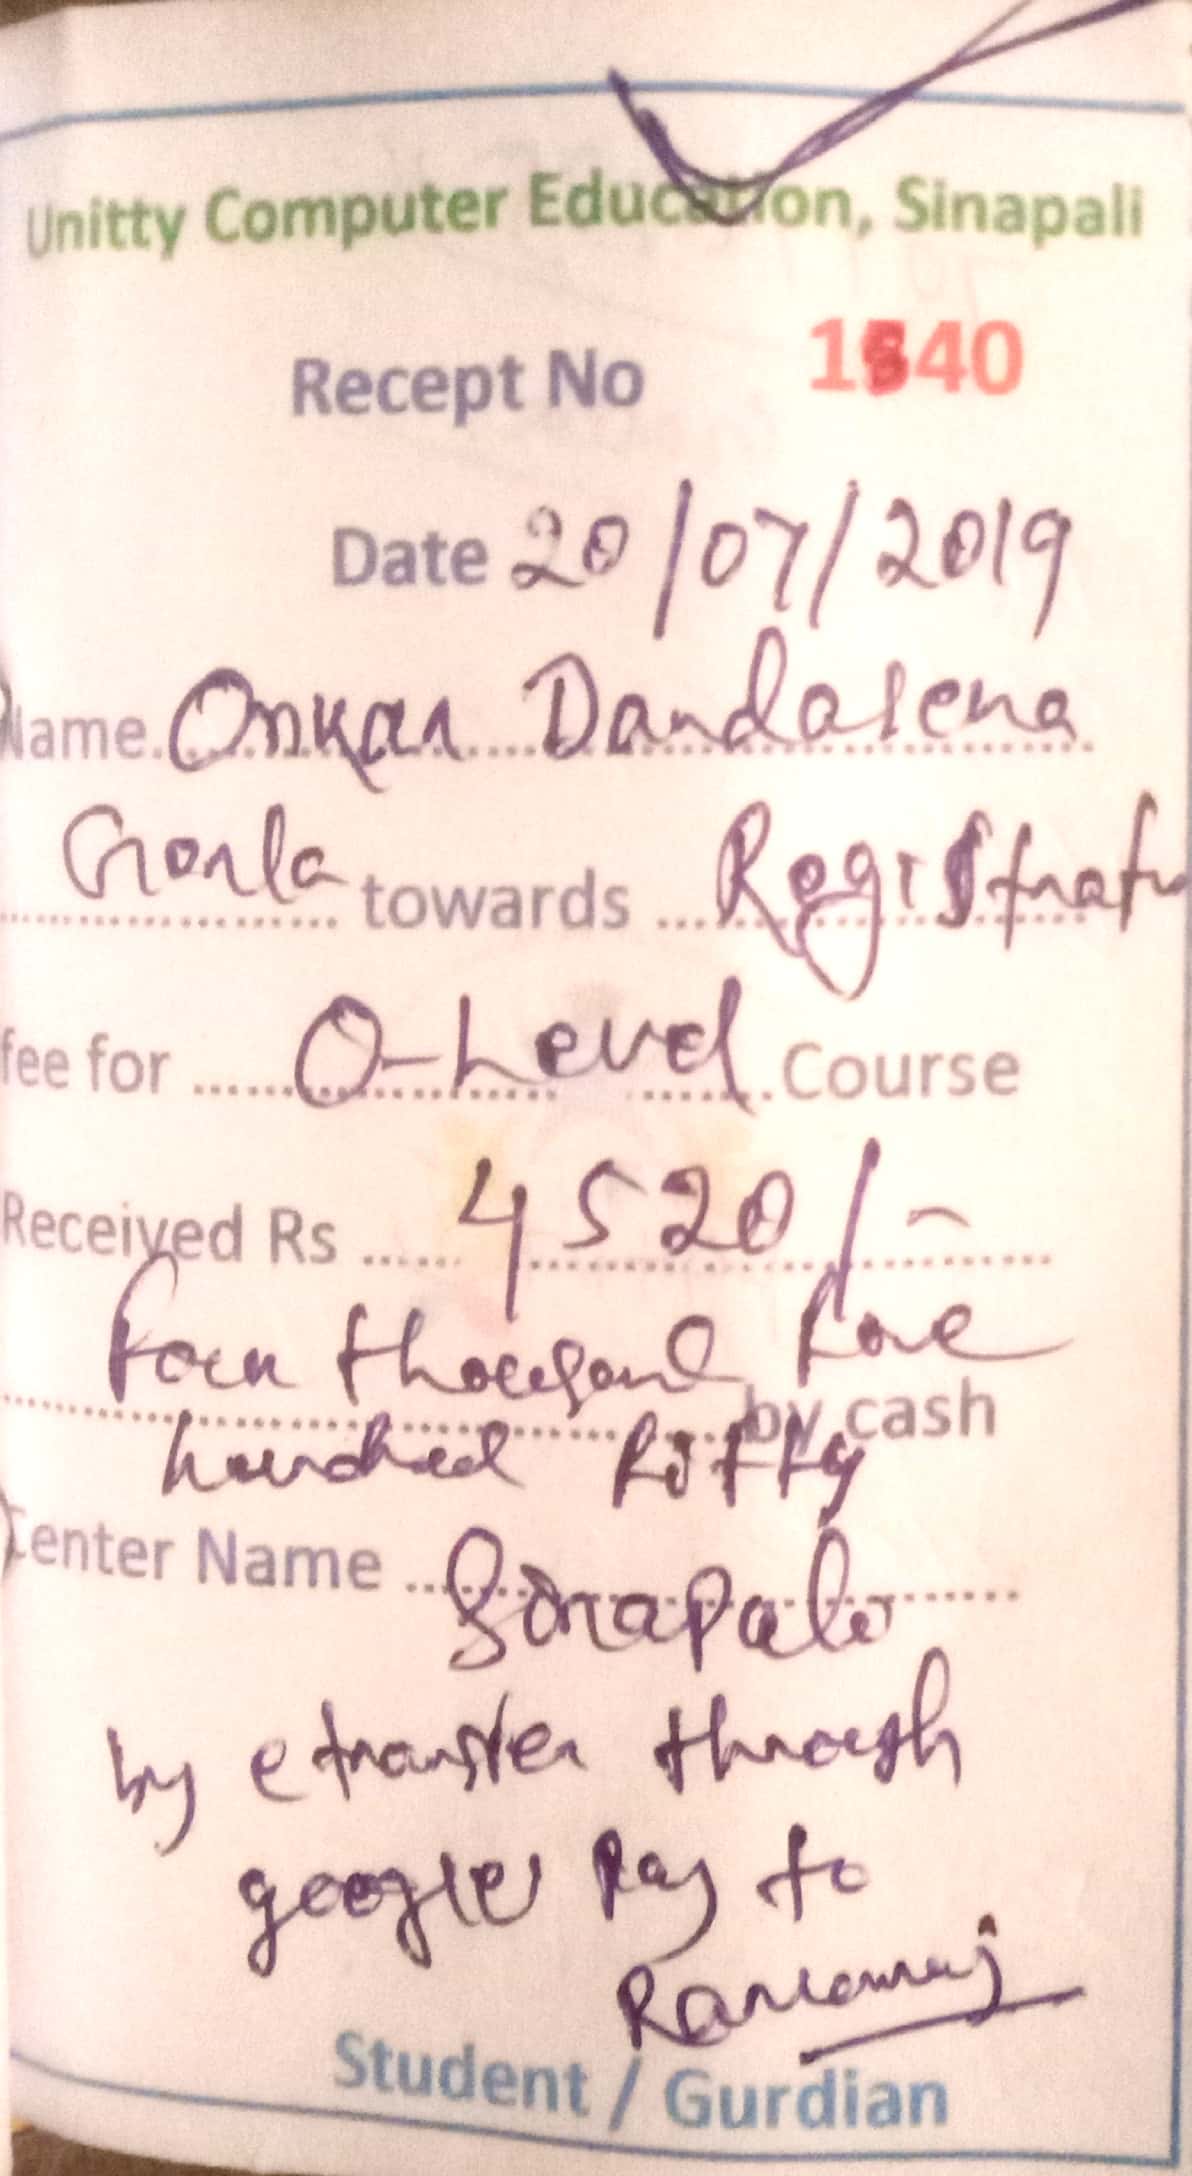 Unitty Computer Education, Sinapali
Recept No 1840
Date 20/07/2019
Name Onkar Dandasena
Gorla towards Registratn
fee for O-Level Course
Received Rs 4520/-
Four thousand five
by cash
hundred fifty
Center Name Sinapali
by etransfer through
google pay to
Student / Gurdian